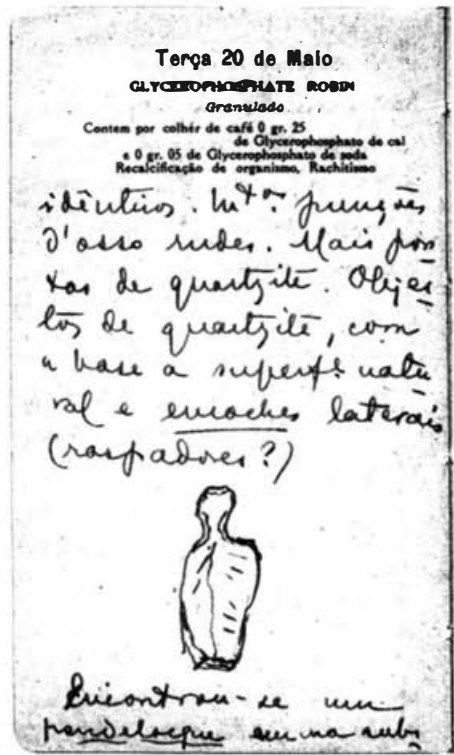 Terça 20 de Maio
GLYCEROPHOSPHATE ROBIN
Granulado
Contem por colhér de café 0 gr. 25
de Glycerophosphato de cal
e 0 gr. 05 de Glycerophosphato de soda
Recalcificação de organismo, Rachitismo
idênticos. Mtos punções
d'osso rudes. Mais pon
tas de quartzite. Objec
tos de quartzite, com
a base a superfe natu
ral e encoches laterais
(raspadores?)
Encontrou-se um
pendeloque em na subs